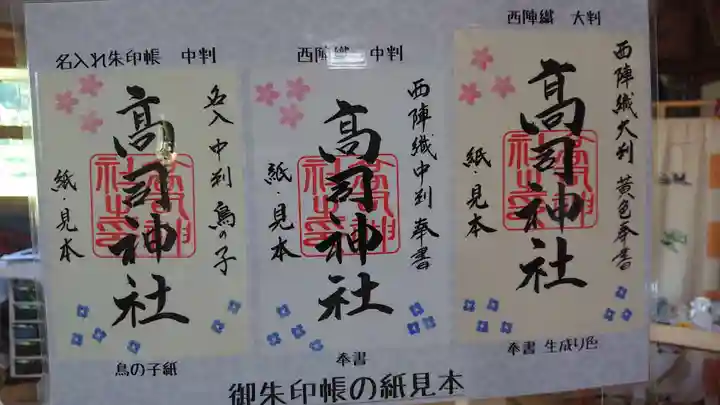 名入れ朱印帳　中判
名入 中判 鳥の子
髙司神社
紙・見本
鳥の子紙
西陣織　中判
西陣織中判 奉書
髙司神社
紙・見本
奉書
西陣織　大判
西陣織大判 黄色奉書
髙司神社
紙・見本
奉書 生成り色
御朱印帳の紙見本